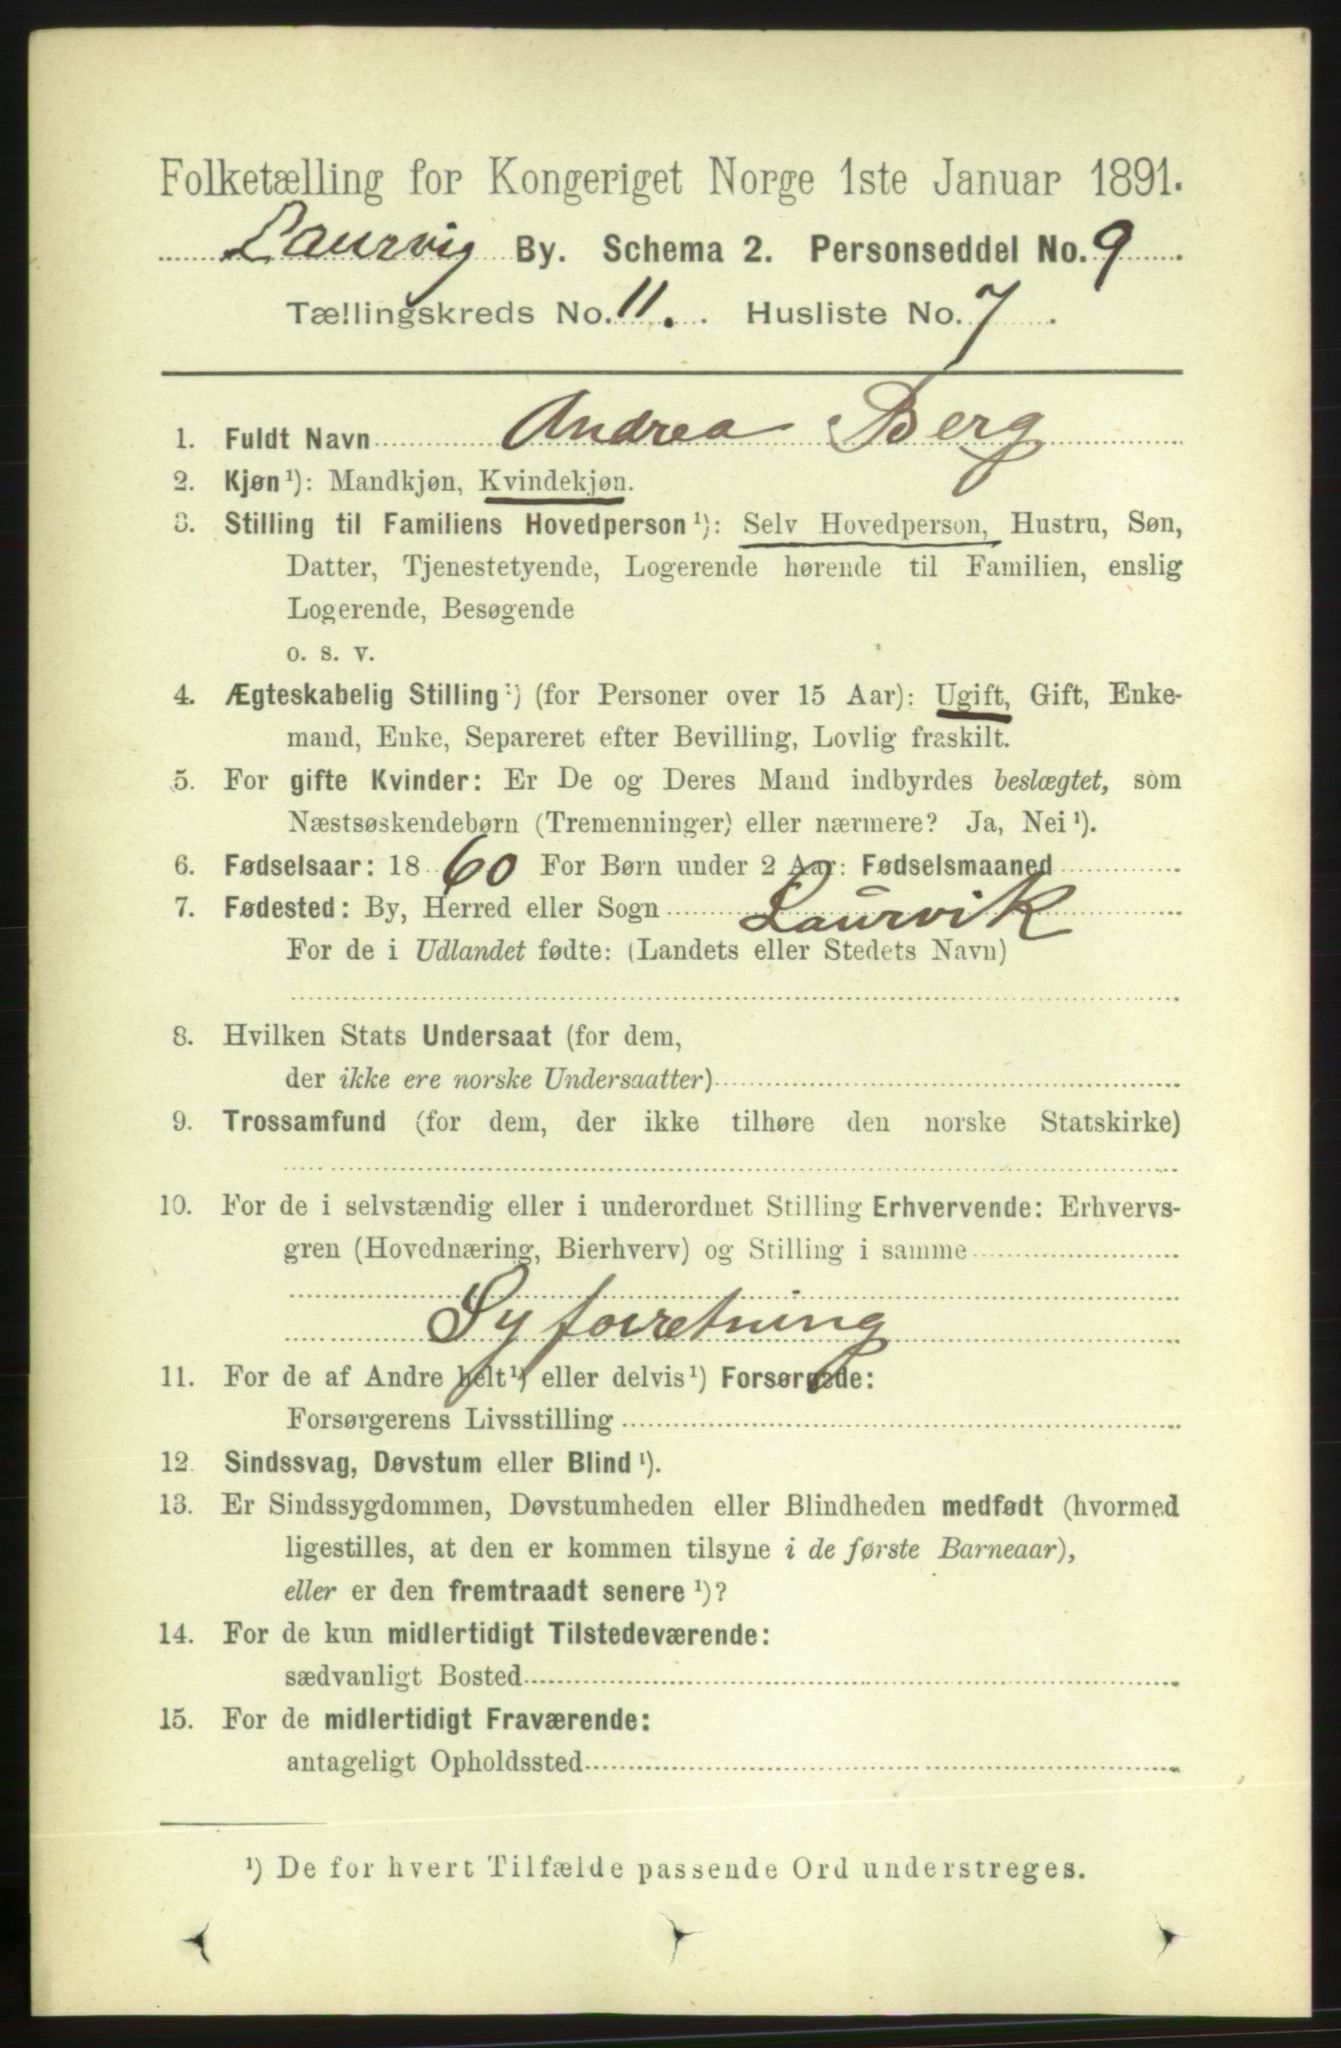 Folketælling for Kongeriget Norge 1ste Januar 1891.
Laurvig By. Schema 2. Personseddel No. 9
Tællingskreds No. 11. Husliste No. 7.
1. Fuldt Navn Andrea Berg
2. Kjøn ¹): Mandkjøn, Kvindekjøn.
3. Stilling til Familiens Hovedperson ¹): Selv Hovedperson, Hustru, Søn,
Datter, Tjenestetyende, Logerende hørende til Familien, enslig
Logerende, Besøgende
o. s. v.
4. Ægteskabelig Stilling ¹) (for Personer over 15 Aar): Ugift, Gift, Enke-
mand, Enke, Separeret efter Bevilling, Lovlig fraskilt.
5. For gifte Kvinder: Er De og Deres Mand indbyrdes beslægtet, som
Næstsøskendebørn (Tremenninger) eller nærmere? Ja, Nei ¹).
6. Fødselsaar: 18 60 For Børn under 2 Aar: Fødselsmaaned
7. Fødested: By, Herred eller Sogn Laurvik
For de i Udlandet fødte: (Landets eller Stedets Navn)
8. Hvilken Stats Undersaat (for dem,
der ikke ere norske Undersaatter)
9. Trossamfund (for dem, der ikke tilhøre den norske Statskirke)
10. For de i selvstændig eller i underordnet Stilling Erhvervende: Erhvervs-
gren (Hovednæring, Bierhverv) og Stilling i samme
Syforretning
11. For de af Andre helt ¹) eller delvis ¹) Forsørgede:
Forsørgerens Livsstilling
12. Sindssvag, Døvstum eller Blind ¹).
13. Er Sindssygdommen, Døvstumheden eller Blindheden medfødt (hvormed
ligestilles, at den er kommen tilsyne i de første Barneaar),
eller er den fremtraadt senere ¹)?
14. For de kun midlertidigt Tilstedeværende:
sædvanligt Bosted
15. For de midlertidigt Fraværende:
antageligt Opholdssted
¹) De for hvert Tilfælde passende Ord understreges.